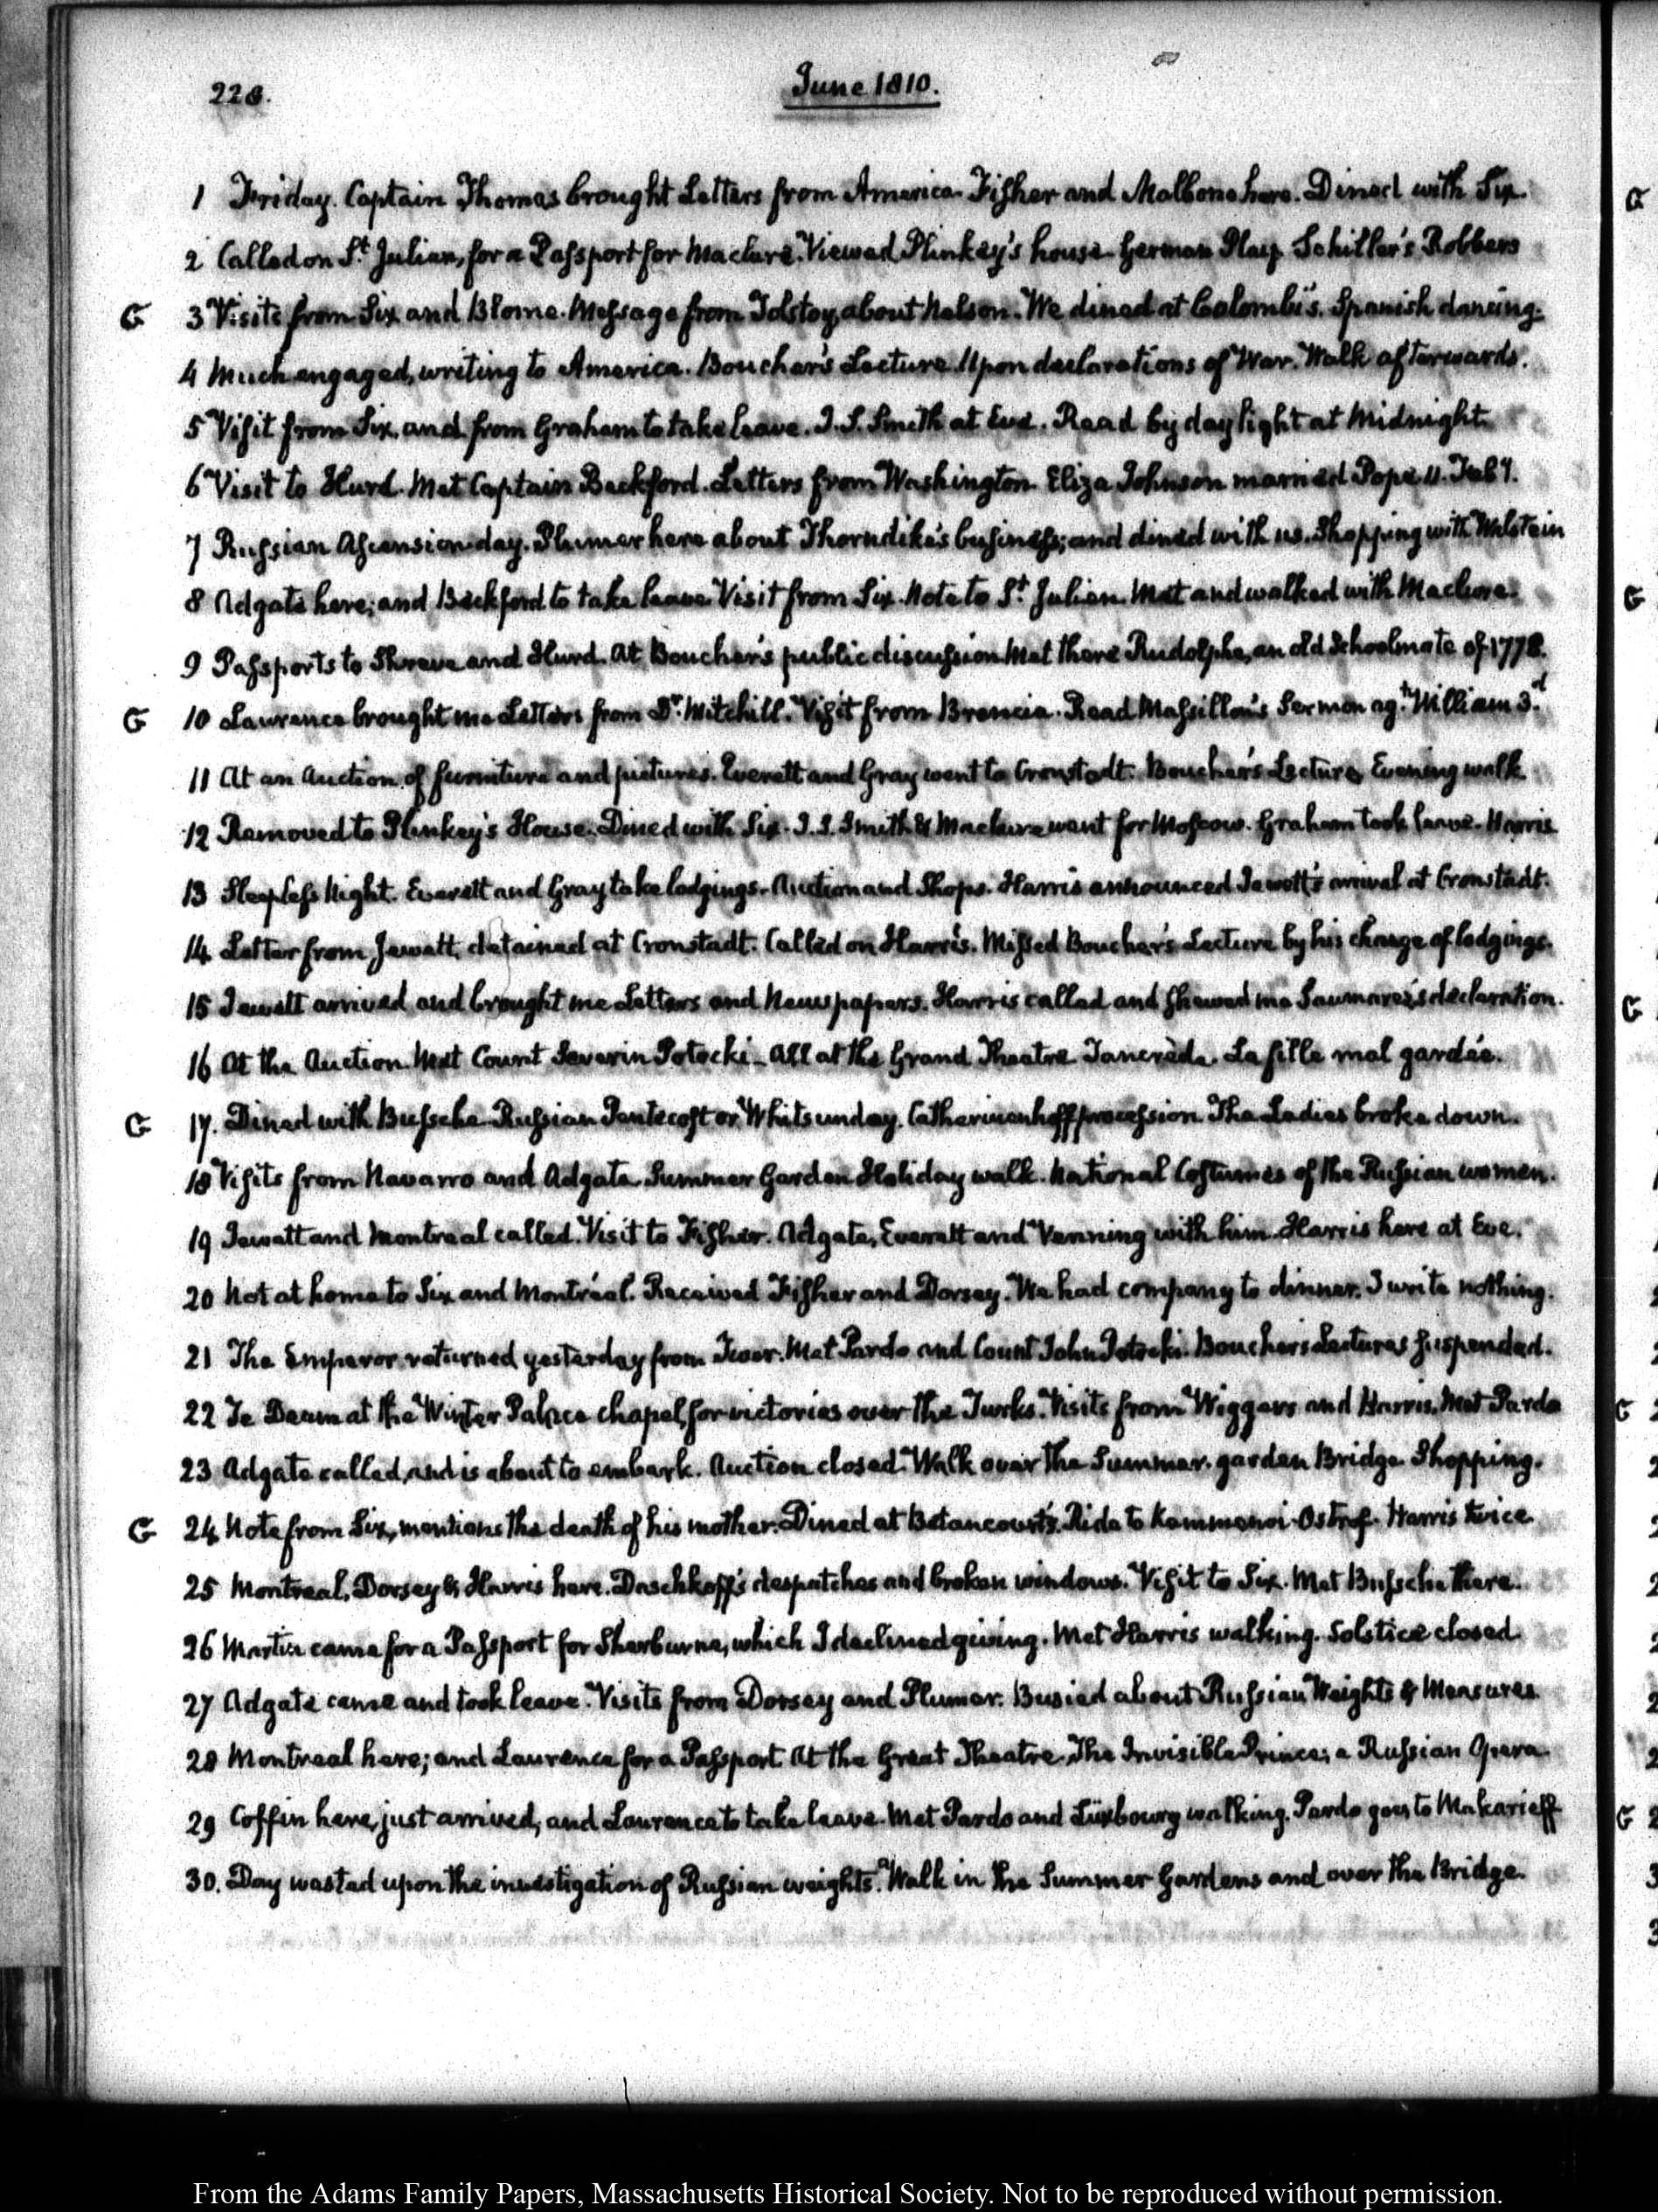 228.
June 1810.
1 Friday. Captain Thomas brought Letters from America. Fisher and Malbone here. Dined with Six.
2 Called on St. Julien, for a Passport for Maclure. Viewed Plinkey's house. German Play. Schiller's Robbers
G 3 Visits from Six and Blome. Message from Tolstoy, about Nelson. We dined at Colombi's. Spanish dancing.
4 Much engaged, writing to America. Boucher's Lecture. Upon declarations of War. Walk afterwards.
5 Visit from Six, and from Graham to take leave. J. S. Smith at Eve. Read by daylight at Midnight.
6 Visit to Hurd. Met Captain Beckford. Letters from Washington. Eliza Johnson married Pope 11. Feby.
7 Russian Ascension day. Plumer here about Thorndike's business; and dined with us. Shopping with Walstein
8 Adgate here; and Beckford to take leave. Visit from Six. Note to St. Julien. Met and walked with Maclure.
9 Passports to Shreve and Hurd. At Boucher's public discussion. Met there Rudolphe, an old Schoolmate of 1778.
G 10 Lawrence brought me Letters from Dr. Mitchill. Visit from Brancia. Read Massillon's Sermon agt. William 3.d
11 At an Auction of furniture and pictures. Everett and Gray went to Cronstadt. Boucher's Lecture. Evening walk.
12 Removed to Plinkey's House. Dined with Six. J. S. Smith & Maclure went for Moscow. Graham took leave. Harris
13 Sleepless Night. Everett and Gray take lodgings. Auction and Shops. Harris announced Jewett's arrival at Cronstadt.
14. Letter from Jewett, detained at Cronstadt. Called on Harris. Missed Boucher's Lecture by his change of lodgings.
15 Jewett arrived and brought me Letters and Newspapers. Harris called and shewed me Saumarez's declaration.
16 At the Auction. Met Count Severin Potocki_ All at the Grand Theatre. Tancrède. La fille mal gardée.
G 17. Dined with Bussche. Russian Pentecost or Whitsunday. Catherinenhoff procession. The Ladies broke down.
18 Visits from Navarro and Adgate. Summer Garden Holiday walk. National Costumes of the Russian women.
19 Jewett and Montreal called. Visit to Fisher. Adgate, Everett and Venning with him. Harris here at Eve.
20 Not at home to Six and Montréal. Received Fisher and Dorsey. We had company to dinner. I write nothing.
21 The Emperor returned yesterday from Twer. Met Pardo and Count John Potocki. Boucher's Lectures suspended.
22 Te Deum at the Winter Palace chapel, for victories over the Turks. Visits from Wiggers and Harris. Met Pardo
23 Adgate called, and is about to embark. Auction closed. Walk over the Summer-garden Bridge. Shopping.
G 24 Note from Six, mentions the death of his mother. Dined at Betancourt's. Ride to Kammenoi-Ostrof. Harris twice
25 Montreal, Dorsey & Harris here. Daschkoff's despatches and broken windows. Visit to Six. Met Bussche there.
26 Martin came for a Passport for Sherburne, which I declined giving. Met Harris walking. Solstice closed.
27 Adgate came and took leave. Visits from Dorsey and Plumer. Busied about Russian Weights & Measures.
28 Montreal here; and Laurence for a Passport. At the Great Theatre. The Invisible Prince; a Russian Opera.
29 Coffin here, just arrived, and Laurence to take leave. Met Pardo and Luxbourg walking. Pardo goes to Makarieff
30. Day wasted upon the investigation of Russian weights. Walk in the Summer Gardens and over the Bridge.
From the Adams Family Papers, Massachusetts Historical Society. Not to be reproduced without permission.